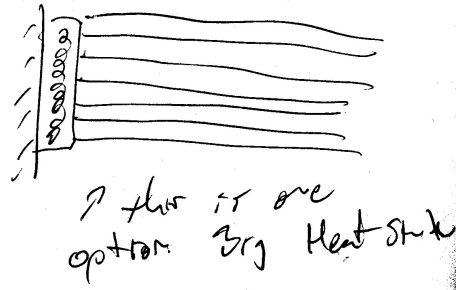 ↗ this is one
option Big Heat Sink